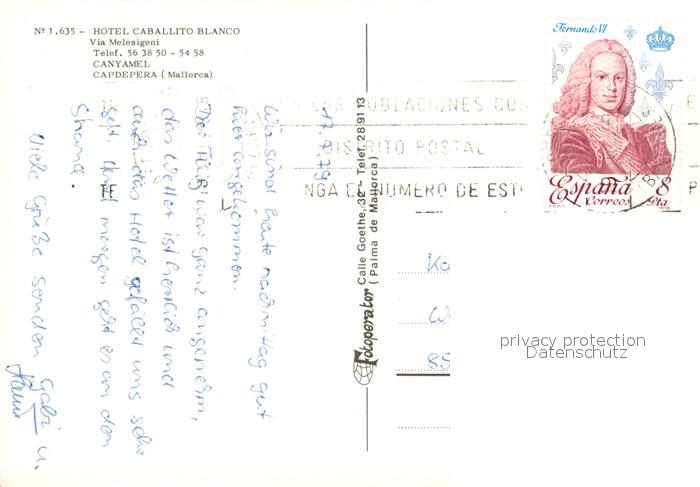 Nº 1.635 - HOTEL CABALLITO BLANCO
Via Melesigeni
Telef. 56 38 50 - 54 58
CANYAMEL
CAPDEPERA (Mallorca)
Fernando VI
España
Correos
8
Pta
POBLACIONES CON
DISTRITO POSTAL
NGA EL NUMERO DE
Wir sind heute nachmittag gut
hier angekommen.
Der Flug war ganz angenehm,
das Wetter ist herrlich und
auch das Hotel gefällt uns sehr
gut. Und morgen geht es an den
Strand.
Viele Grüße senden Gabi u.
Fotoperator Calle Goethe, 32 - Telef. 28 91 13
(Palma de Mallorca)
Ko
W
85
privacy protection
Datenschutz